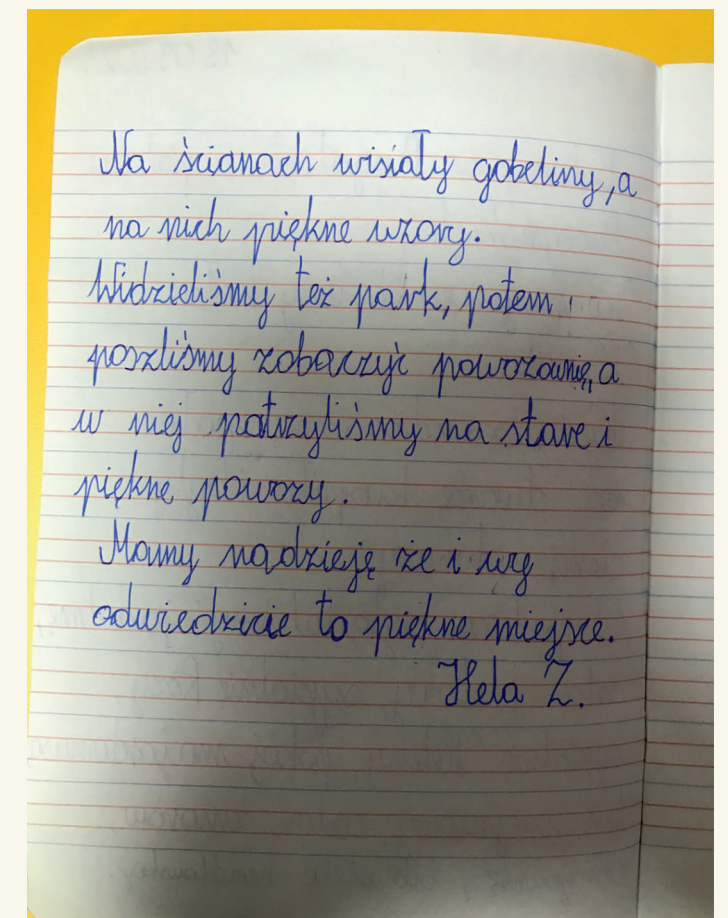 Na ścianach wisiały gobeliny, a
na nich piękne wzory.
Widzieliśmy też park, potem
poszliśmy zobaczyć powozownię, a
w niej patrzyliśmy na stare i
piękne powozy.
Mamy nadzieję że i wy
odwiedzicie to piękne miejsce.
Hela Z.